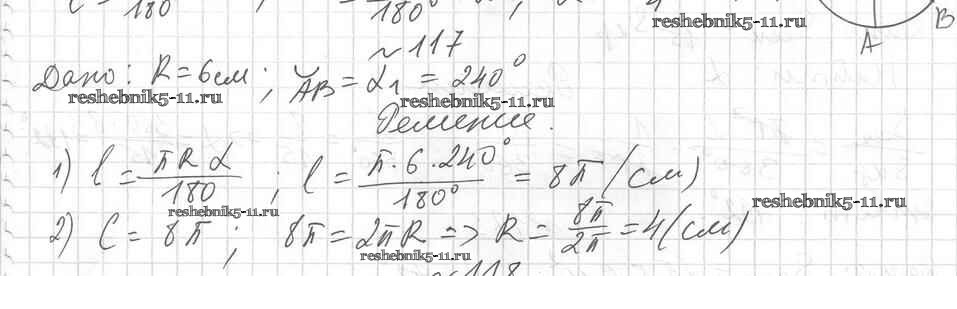 180 180° reshebnik5-11.ru
A B
~ 117
Дано: R = 6 см; ◡AB = α₁ = 240°
reshebnik5-11.ru reshebnik5-11.ru
Решение.
1) l = πRα / 180 ; l = π·6·240° / 180° = 8π (см)
reshebnik5-11.ru reshebnik5-11.ru
2) C = 8π; 8π = 2πR => R = 8π / 2π = 4 (см)
reshebnik5-11.ru
~ 118